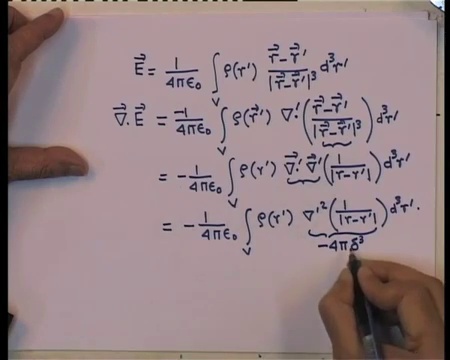 E⃗ = 1/4πε₀ ∫_V ρ(r') (r⃗-r⃗')/|r⃗-r⃗'|³ d³r'
∇⃗.E⃗ = -1/4πε₀ ∫_V ρ(r⃗') ∇'.((r⃗-r⃗')/|r⃗-r⃗'|³) d³r'
= -1/4πε₀ ∫_V ρ(r') ∇⃗'.∇⃗'(1/|r-r'|) d³r'
= -1/4πε₀ ∫_V ρ(r') ∇'²(1/|r-r'|) d³r'.
-4πδ³